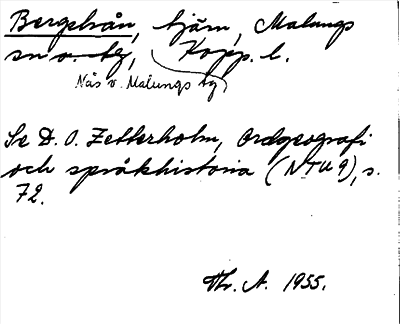 Bergstrån, tjärn, Malungs
sn o. tg, Kopp. l.
Nås o. Malungs tg
Se D. O. Zetterholm, Ordgeografi
och språkhistoria (NTU 9), s.
72.
Thr. A. 1955.